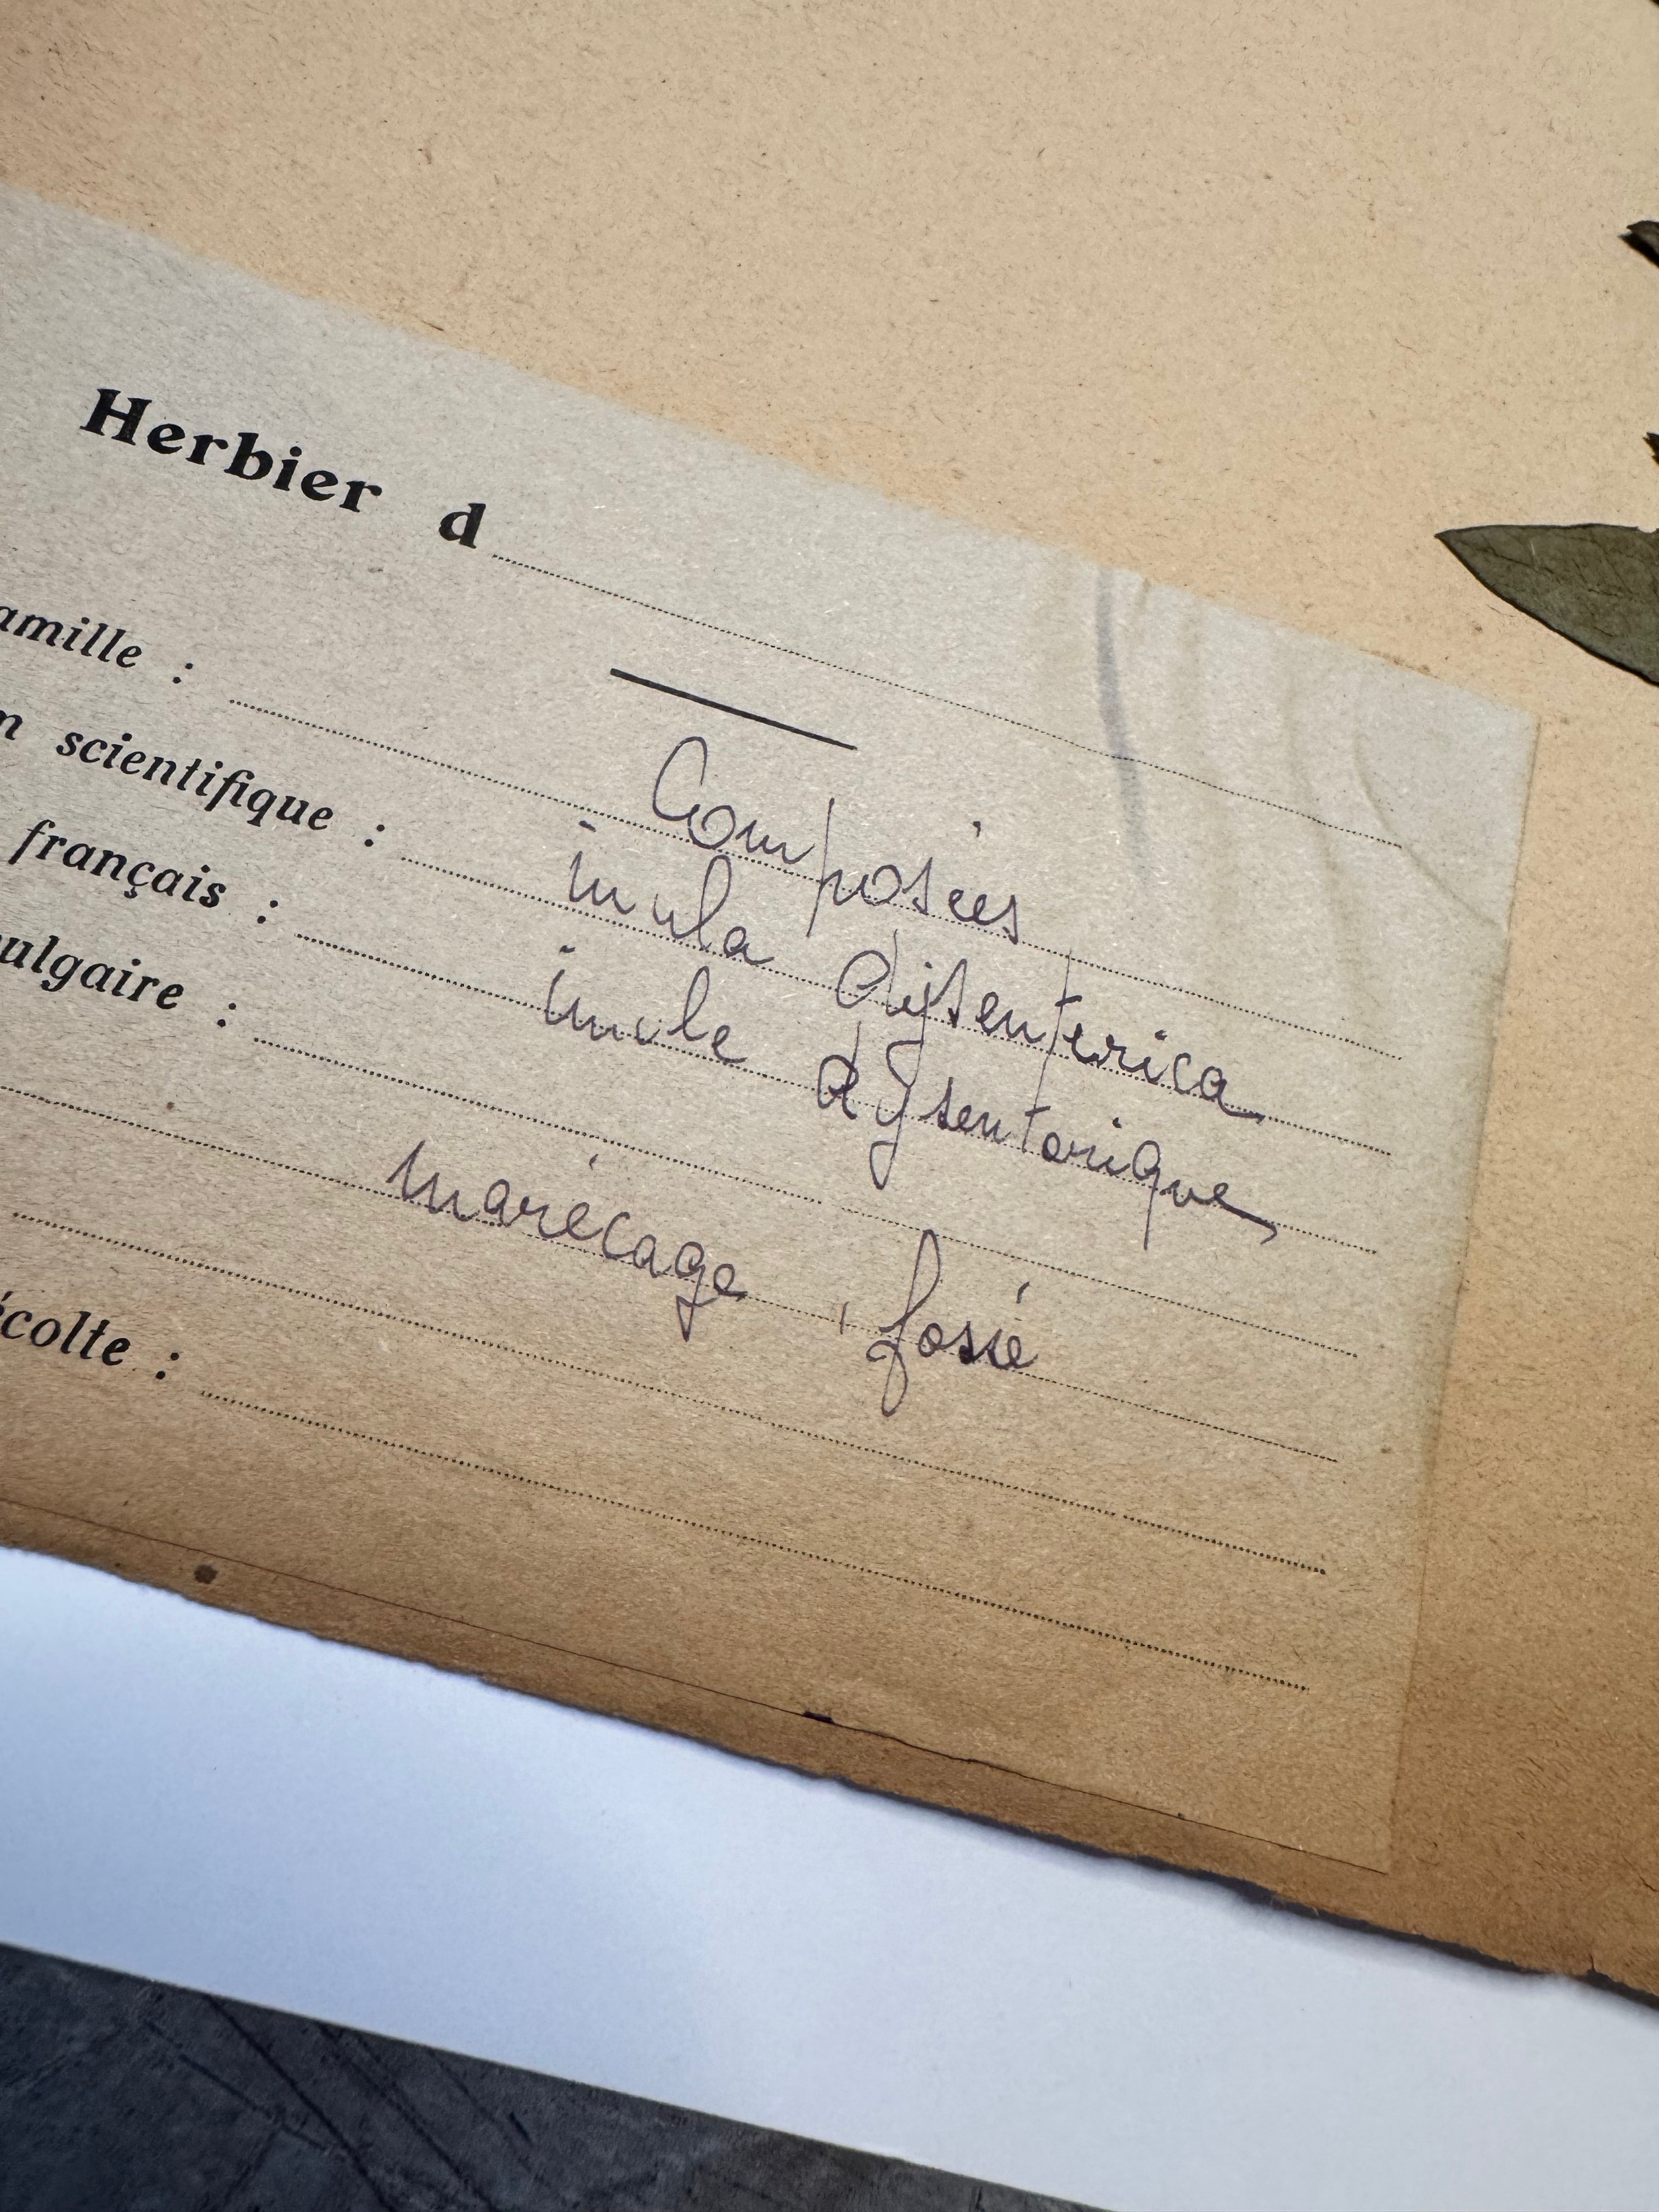 Herbier d
amille : Composées
n scientifique : inula dysenterica
français : inule dysentérique
ulgaire :
marécage, fossé
écolte :